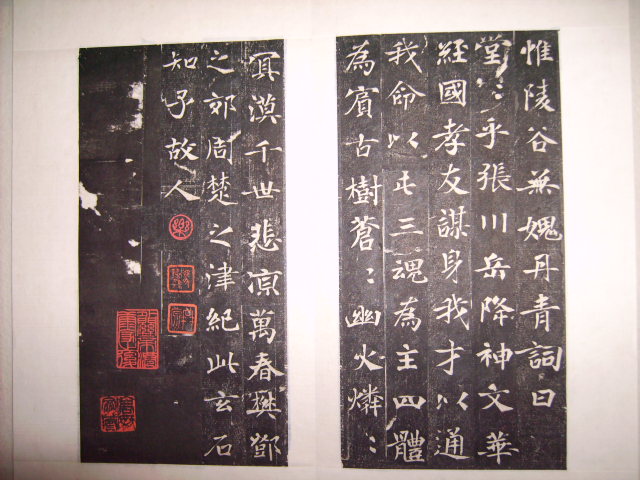 惟陵谷無媿丹青詞曰
堂〻乎張川岳降神文華
經國孝友謀身我才以通
我命以屯三魂為主四體
為賓古樹蒼〻幽火燐〻
冥漠千世悲凉萬春樊鄧
之郊周楚之津紀此玄石
知予故人